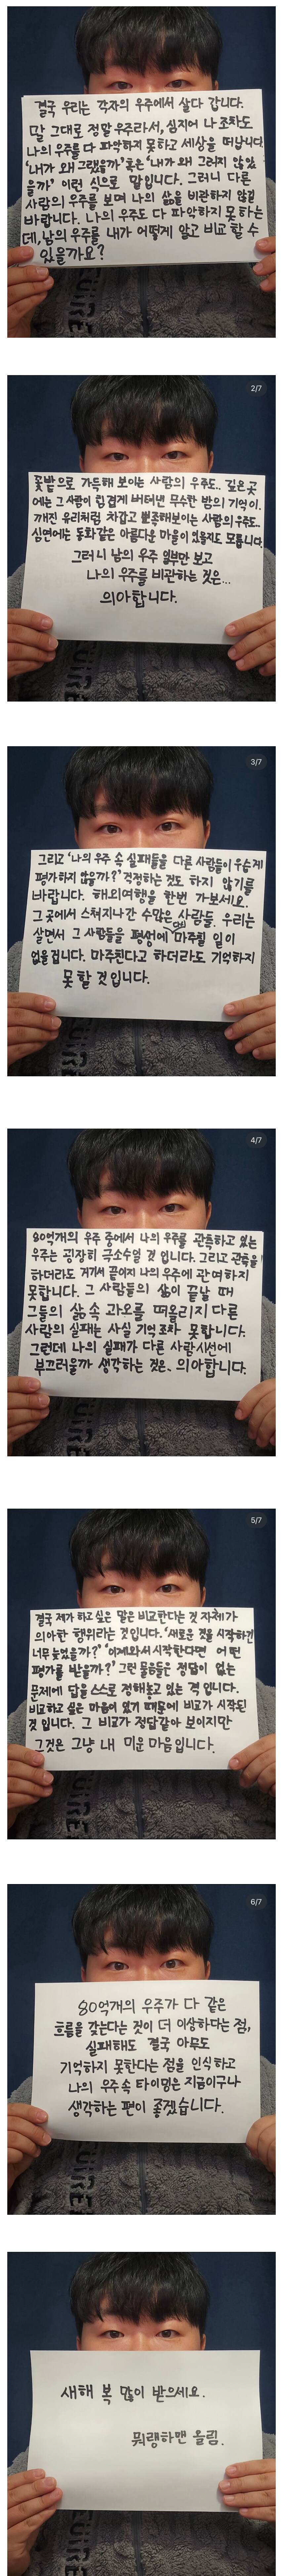 결국 우리는 각자의 우주에서 살다 갑니다.
말 그대로 정말 우주라서, 심지어 나 조차도
나의 우주를 다 파악하지 못하고 세상을 떠납니다.
'내가 왜 그랬을까' 혹은 '내가 왜 그러지 않았
을까' 이런 식으로 말입니다. 그러니 다른
사람의 우주를 보며 나의 삶을 비관하지 않길
바랍니다. 나의 우주도 다 파악하지 못하는
데, 남의 우주를 내가 어떻게 알고 비교 할 수
있을까요?
2/7
꽃밭으로 가득해 보이는 사람의 우주도.. 깊은 곳
에는 그 사람이 힘겹게 버텨낸 무수한 밤의 기억이.
깨진 유리처럼 차갑고 뾰족해보이는 사람의 우주도..
심연에는 동화같은 아름다운 마을이 있을지도 모릅니다.
그러니 남의 우주 일부만 보고
나의 우주를 비관하는 것은...
의아합니다.
3/7
그리고 '나의 우주 속 실패들을 다른 사람들이 우습게
평가하지 않을까?' 걱정하는 것도 하지 않기를
바랍니다. 해외여행을 한번 가보세요.
그 곳에서 스쳐지나간 수많은 사람들. 우리는
살면서 그 사람들을 평생에 마주칠 일이
없을겁니다. 마주친다고 하더라도 기억하지
못 할 것 입니다.
4/7
80억개의 우주 중에서 나의 우주를 관측하고 있는
우주는 굉장히 극소수일 것 입니다. 그리고 관측을
하더라도 거기서 끝이지 나의 우주에 관여하지
못합니다. 그 사람들의 삶이 끝날 때
그들의 삶 속 과오를 떠올리지 다른
사람의 실패는 사실 기억조차 못합니다.
그런데 나의 실패가 다른 사람시선에
부끄러울까 생각하는 것은.. 의아합니다.
5/7
결국 제가 하고 싶은 말은 비교한다는 것 자체가
의아한 행위라는 것입니다. '새로운 것을 시작하긴
너무 늦었을까?' '이제와서 시작한다면 어떤
평가를 받을까?' 그런 물음들은 정답이 없는
문제에 답을 스스로 정해놓고 있는 격 입니다.
비교하고 싶은 마음이 있기 때문에 비교가 시작된
것 입니다. 그 비교가 정답같아 보이지만
그것은 그냥 내 미운 마음입니다.
6/7
80억개의 우주가 다 같은
흐름을 갖는다는 것이 더 이상하다는 점,
실패해도 결국 아무도
기억하지 못한다는 점을 인식하고
나의 우주 속 타이밍은 지금이구나
생각하는 편이 좋겠습니다.
새해 복 많이 받으세요.
뭐랭하맨 올림.